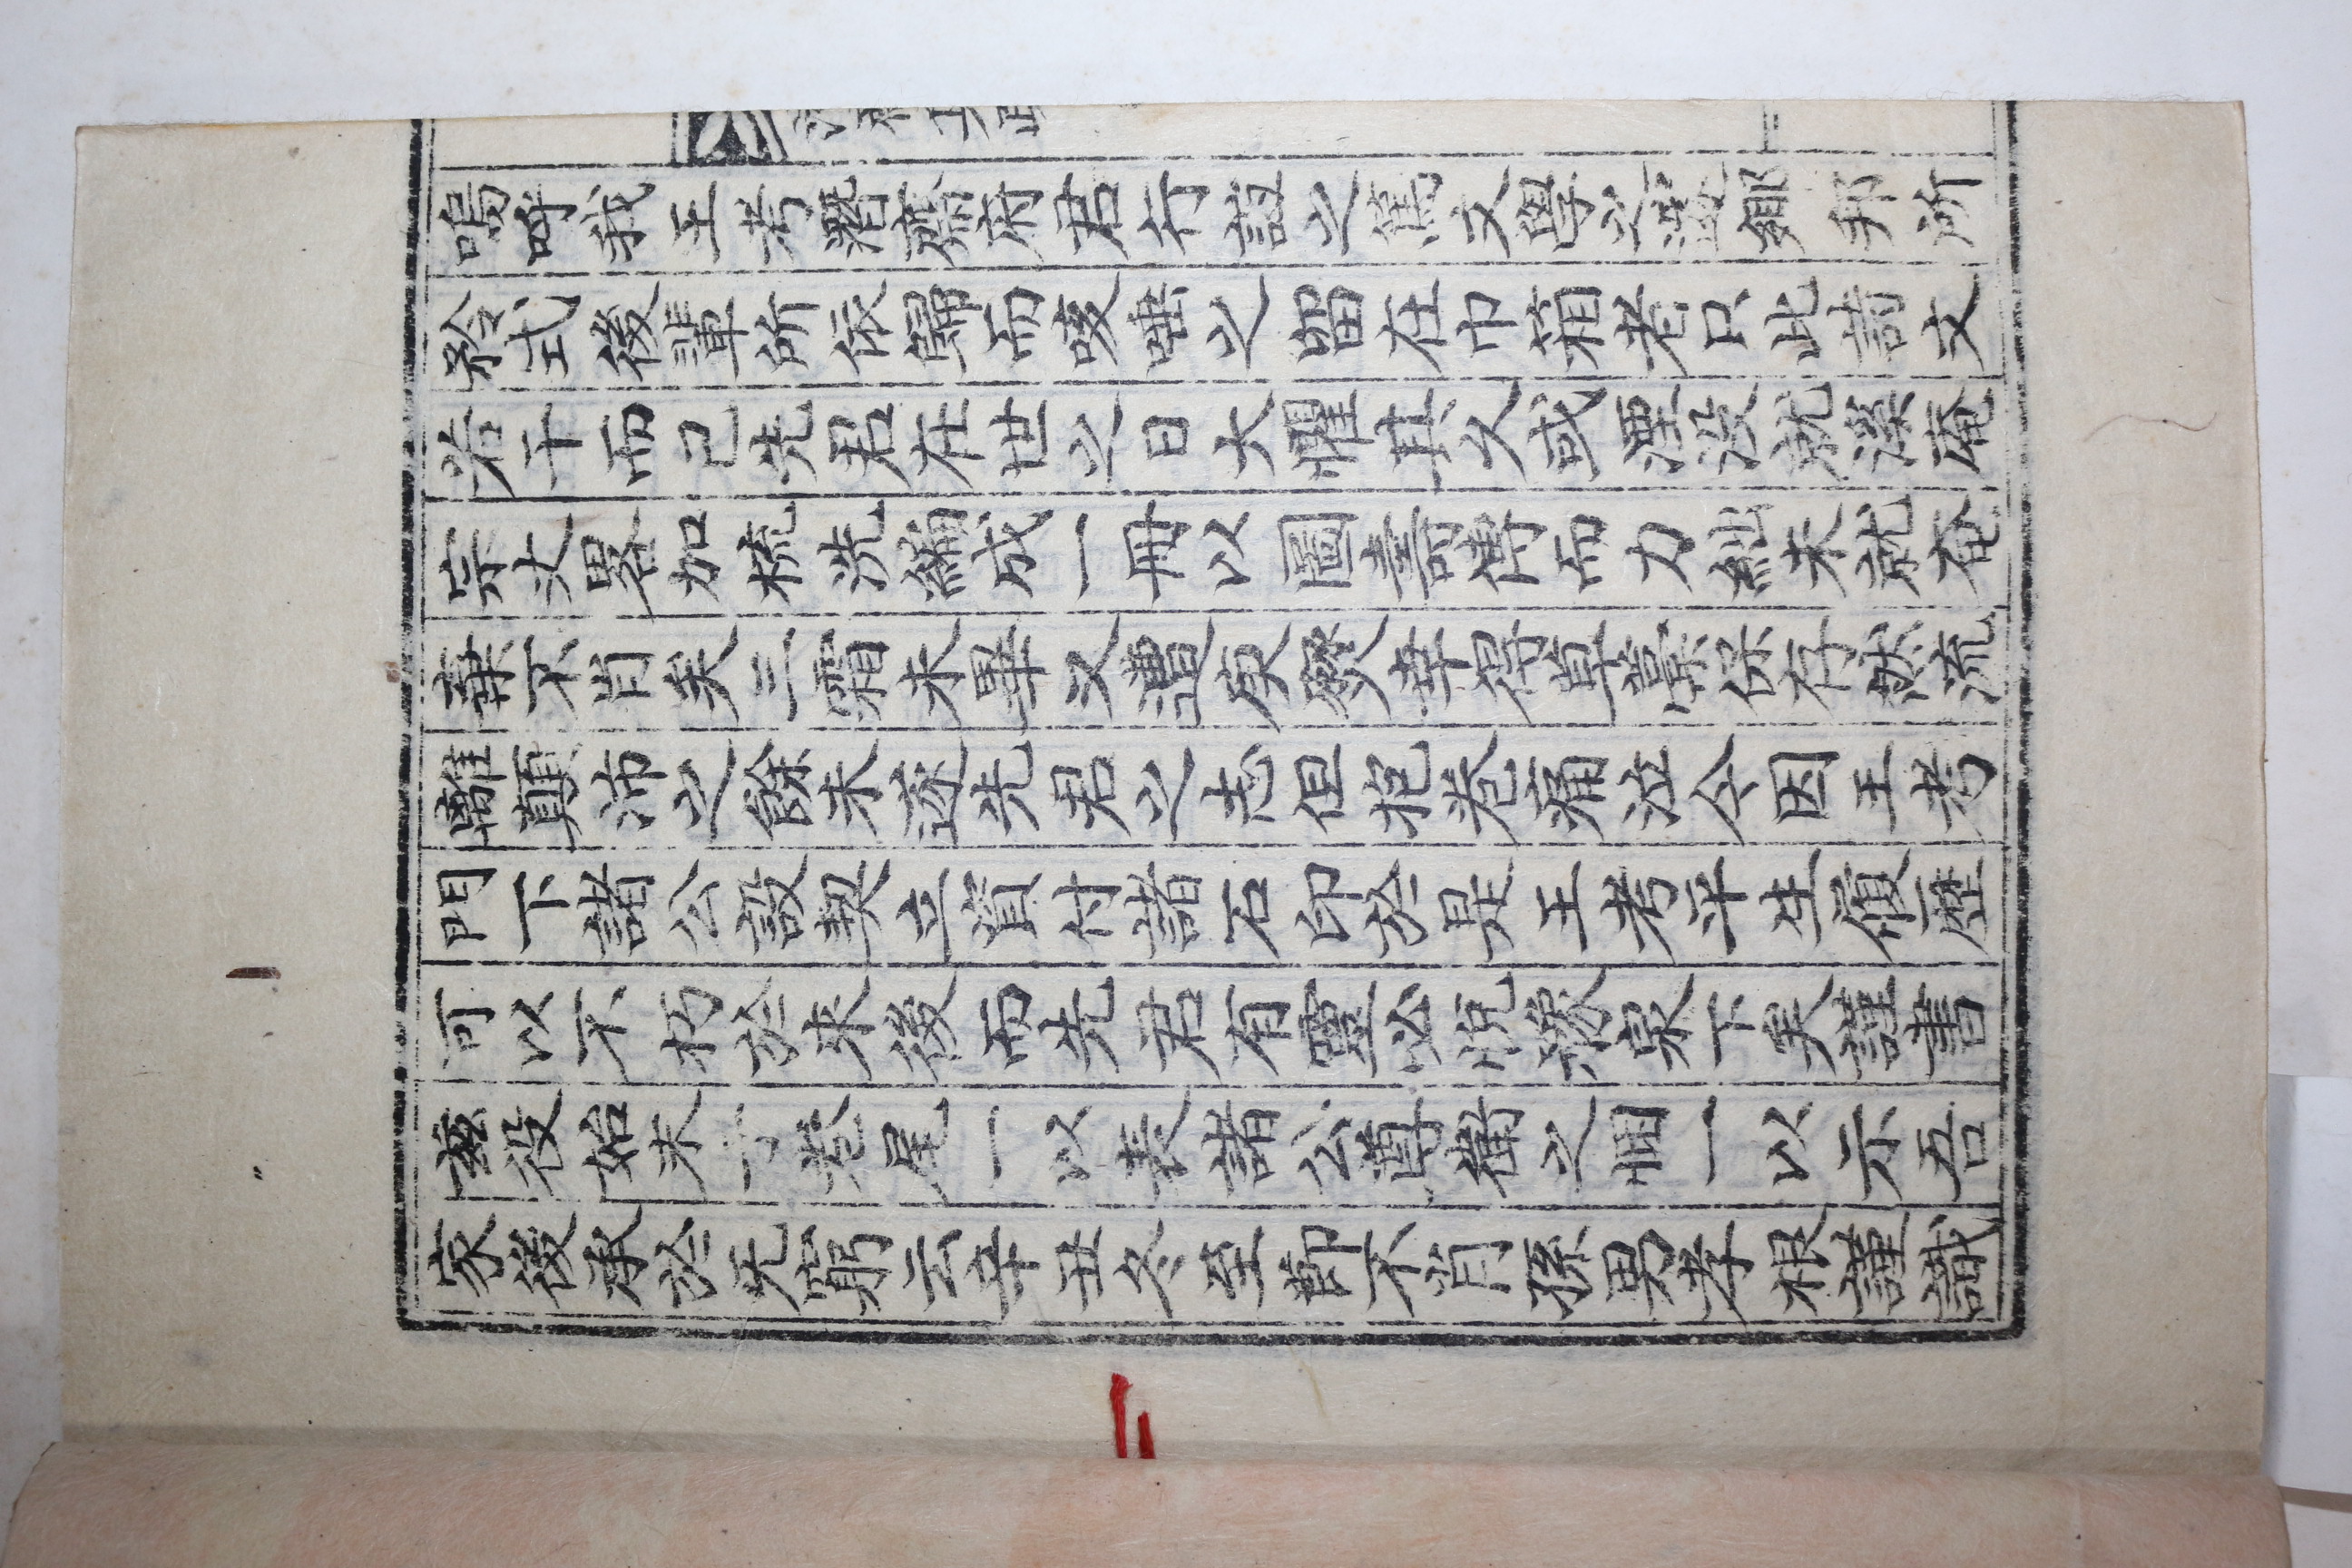 嗚呼我王考潛齋府君行誼之篤文學之邃鄉邦所
矜式後輩所依歸而咳唾之留在巾箱者只此詩文
若干而已先君在世之日大懼其久或湮没就溪庵
宗丈畧加梳洗編成一冊以圖壽傳而力絀未就奄
棄不肖矣三霜未畢又遭庚燹幸得草藁保存然流
離顛沛之餘未遂先君之志但抱卷痛泣今因王考
門下諸公設契立資付諸石印於是王考平生履歷
可以不朽於來後而先君有靈必悅豫泉下矣謹書
玆役始末于卷尾一以表諸公尊衛之悃一以示吾
家後承於无窮云辛丑冬至節不肖孫男孝根謹識